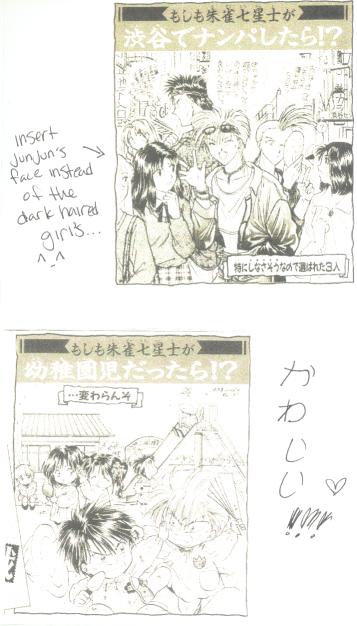 もしも朱雀七星士が
渋谷でナンパしたら!?
insert
junjun's
face instead
of the
dark haired
girl's...
^-^
特にしなさそうなので選ばれた3人
もしも朱雀七星士が
幼稚園児だったら!?
…変わらんぞ
かわいい♡
!!!